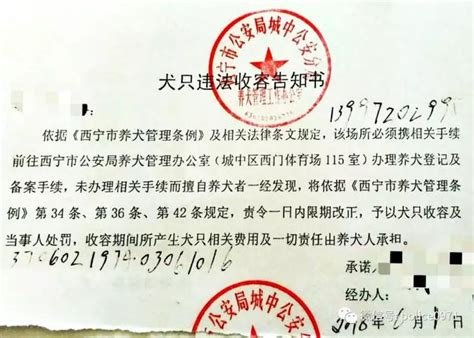 西宁市公安局城中公安分
养犬管理工作办公室
犬只违法收容告知书
依据《西宁市养犬管理条例》及相关法律条文规定,该场所必须携相关手续
前往西宁市公安局养犬管理办公室(城中区西门体育场 115 室)办理养犬登记及
备案手续,未办理相关手续而擅自养犬者一经发现,将依据《西宁市养犬管理条
例》第 34 条、第 36 条、第 42 条规定,责令一日内限期改正,予以犬只收容及
当事人处罚,收容期间所产生犬只相关费用及一切责任由养犬人承担。
370602197403061016
承诺
经办人:
公安局城中公安
2018年6月1日
微信号:police097